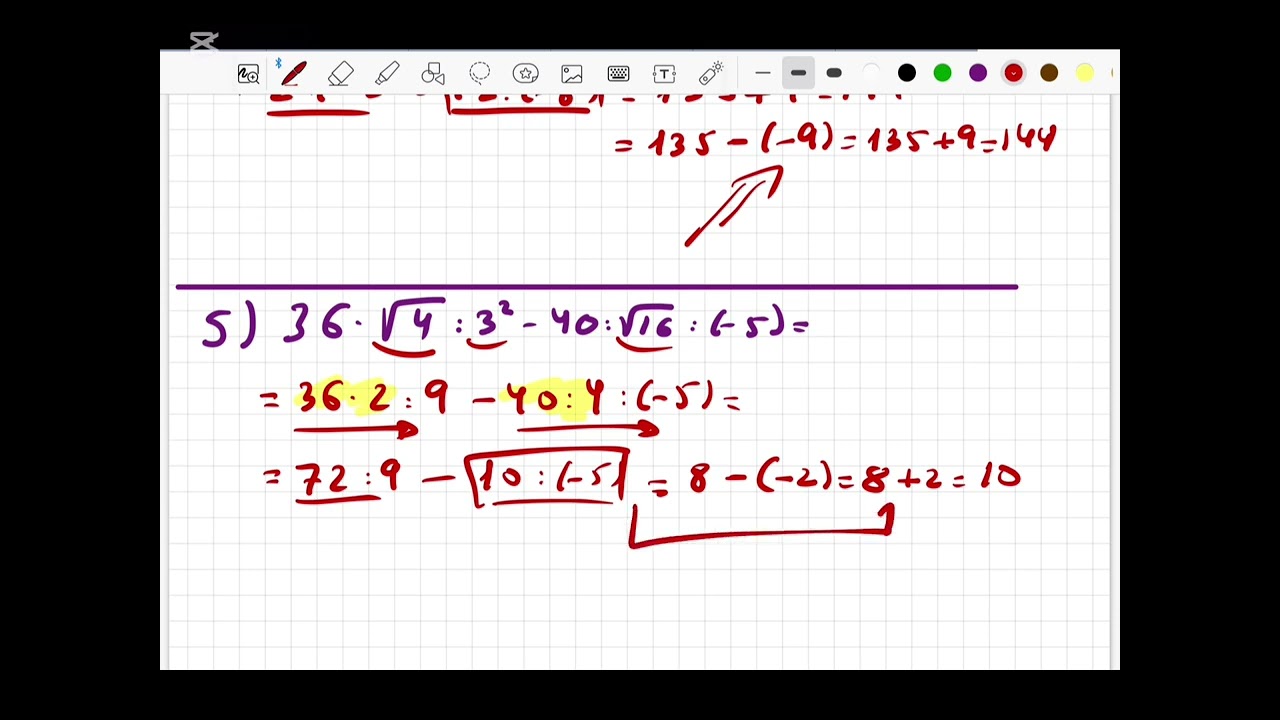 = 135 - (-9) = 135 + 9 = 144
5) 36 · √4 : 3² - 40 : √16 : (-5) =
= 36 · 2 : 9 - 40 : 4 : (-5) =
= 72 : 9 - 10 : (-5) = 8 - (-2) = 8 + 2 = 10